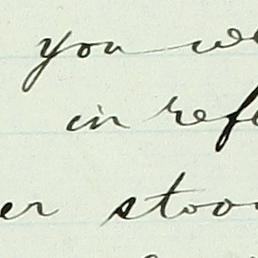 you we
in refe
er stoo